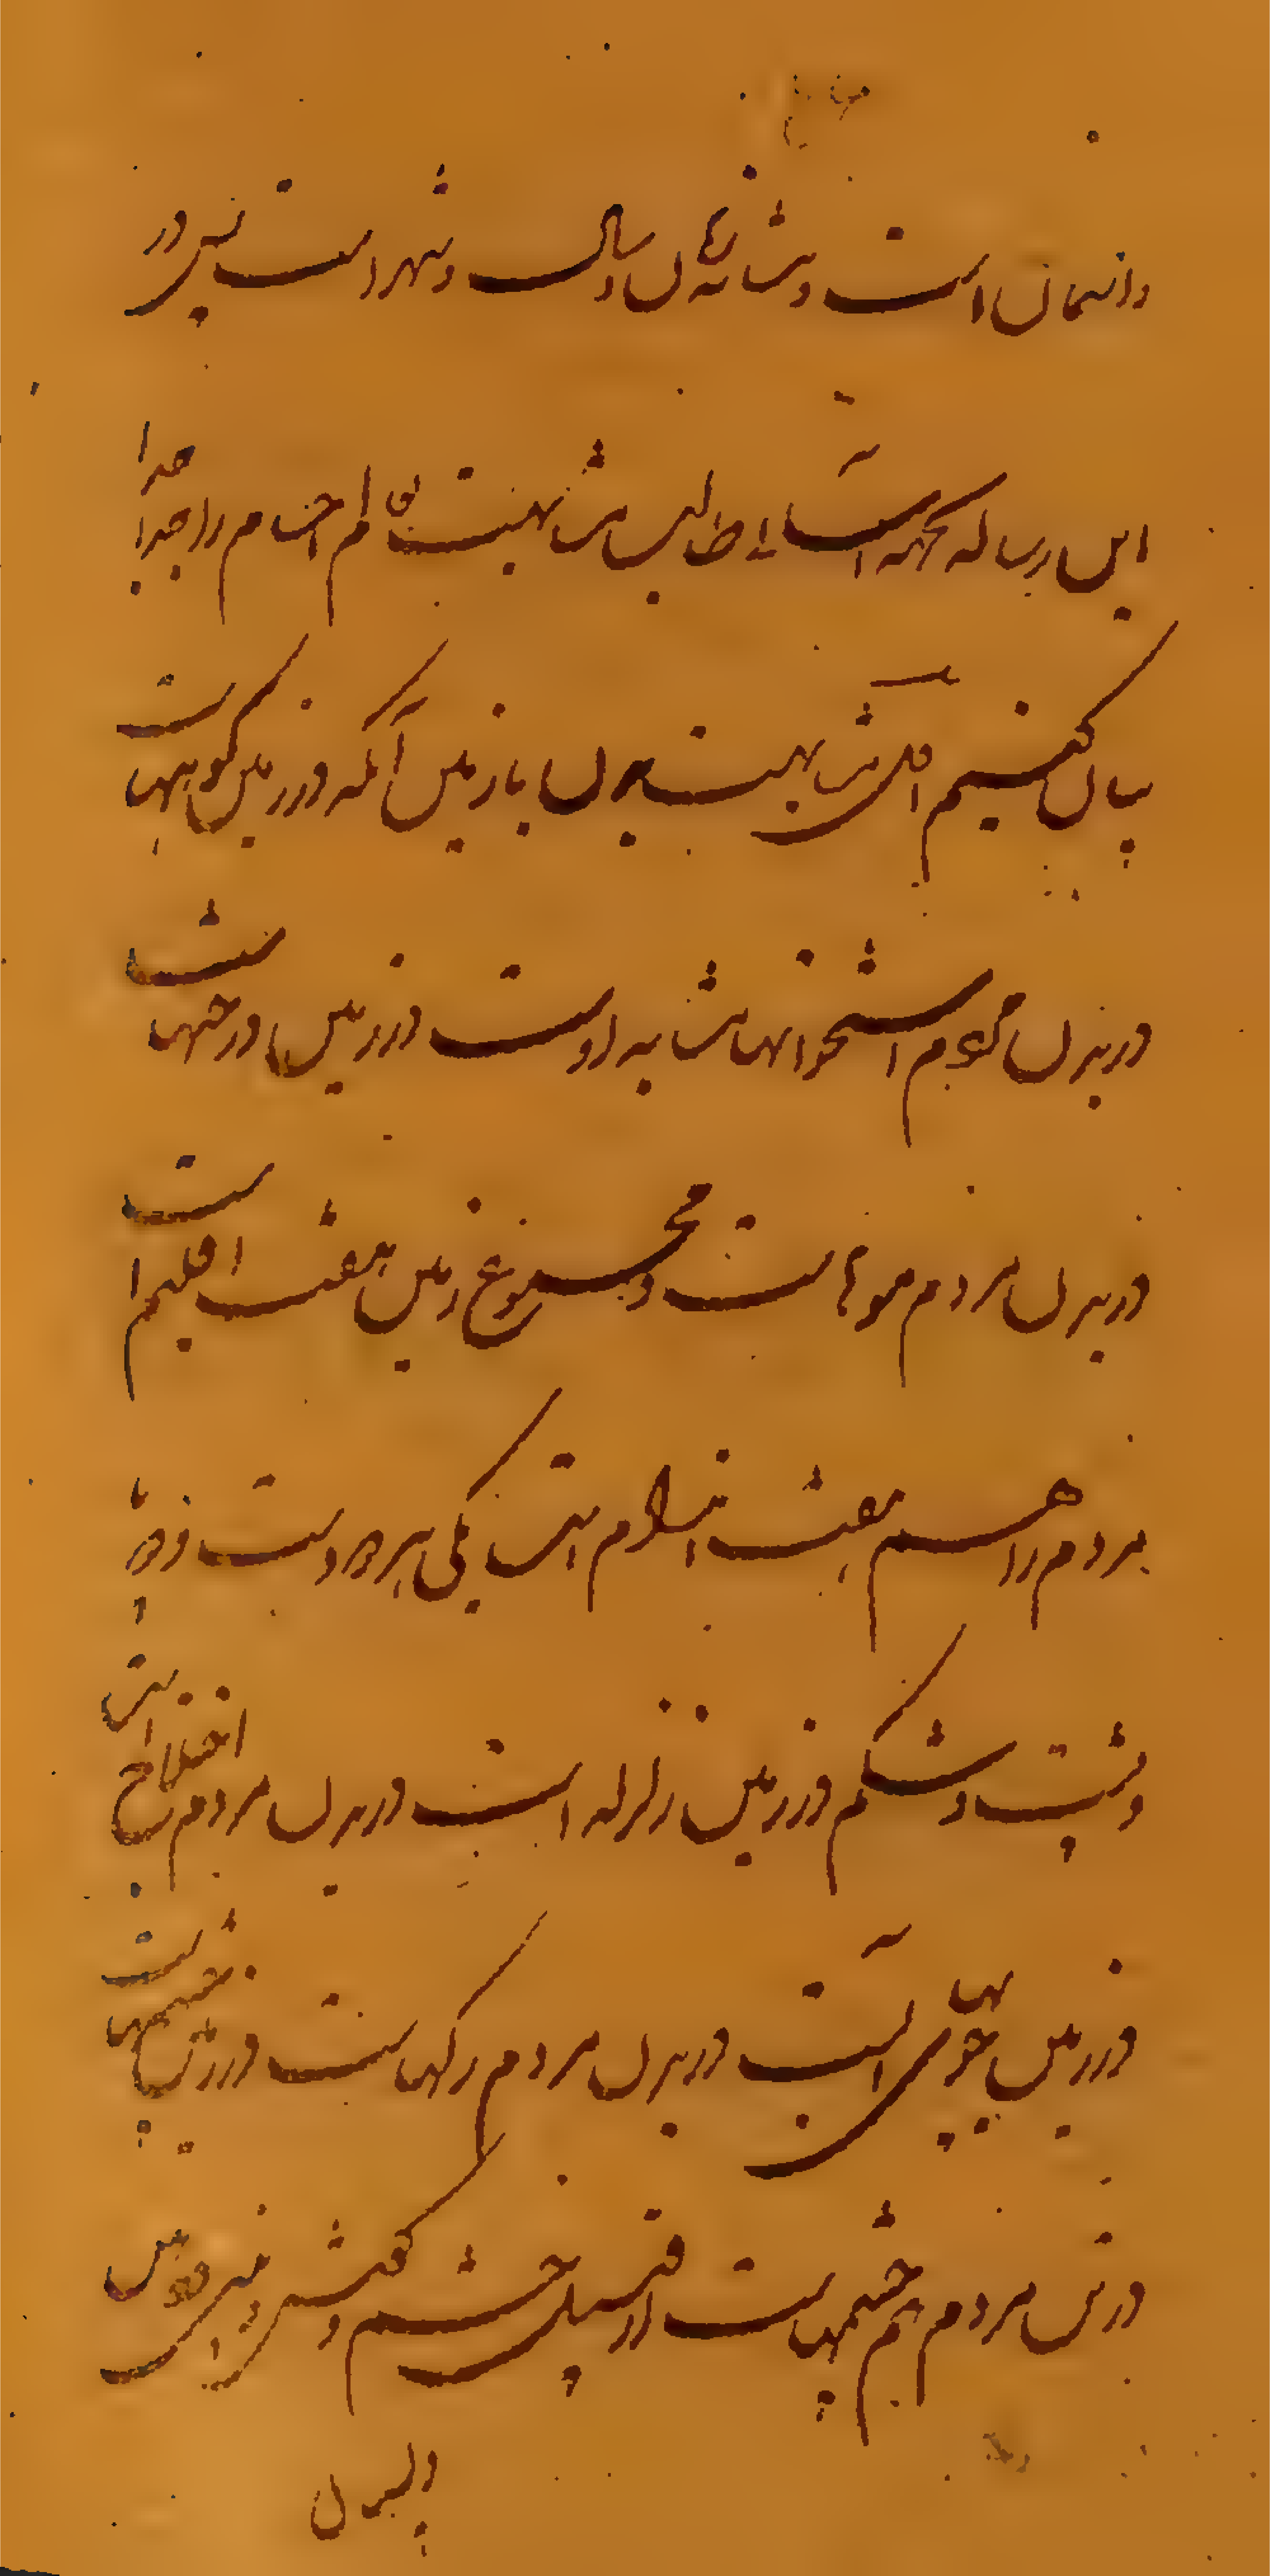 و انسان است و مشابهتهای سال و شهر است پس در
این رساله بجهت آسانی طالب مشابهت تمام اجسام را جدا جدا
بیان کنیم اول مشابهت بدن با زمین آنکه در زمین کوههاست
در بدن مردم استخوانها مشابه اوست در زمین درختهاست
در بدن مردم مویهاست و مجموع زمین هفت اقلیم است
مردم را هم هفت اندام است یکی سر و دو دست و دو پا
و پشت و شکم در زمین زلزله است در بدن مردم اختلاج است
در زمین جویهای آبست در بدن مردم رگهاست در زمین چشمهاست
در تن مردم هم چشمهاست از قبیل چشم و گوش و بینی و دهن
و پستان